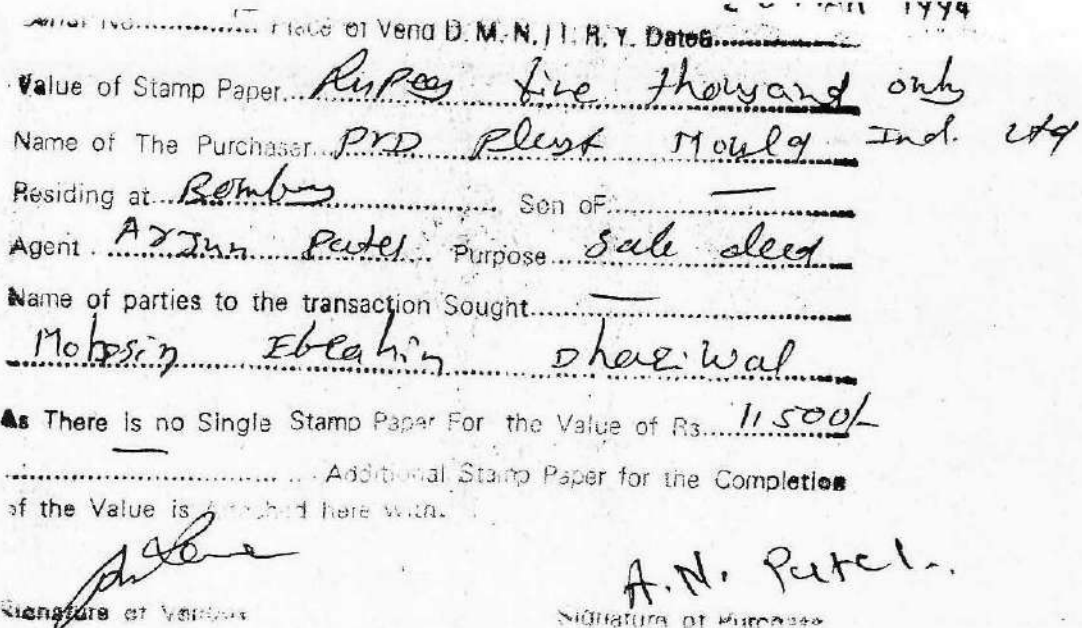 Serial No............... Place of Vend D. M. N. H. R. Y. Dated............... 1994
Value of Stamp Paper...Rupees five thousand only
Name of The Purchaser...PVD Plast Mould Ind. Ltd
Residing at...Bombay............... Son oF...............
Agent...Arjun Patel... Purpose...Sale deed
Name of parties to the transaction Sought...............
Mohosin Ebrahim Dhaniwal
As There is no Single Stamp Paper For the Value of Rs....11500/-
............................... Additional Stamp Paper for the Completion
of the Value is Attached here with.
A.N. Patel.
Signature of Vendor Signature of Purchaser